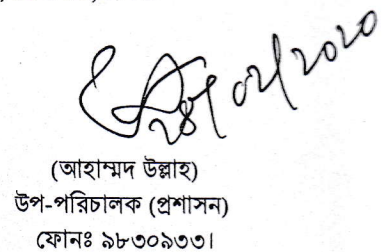 ২৪/০২/২০২০
(আহাম্মদ উল্লাহ)
উপ-পরিচালক (প্রশাসন)
ফোনঃ ৯৮৩০৯৩৩।